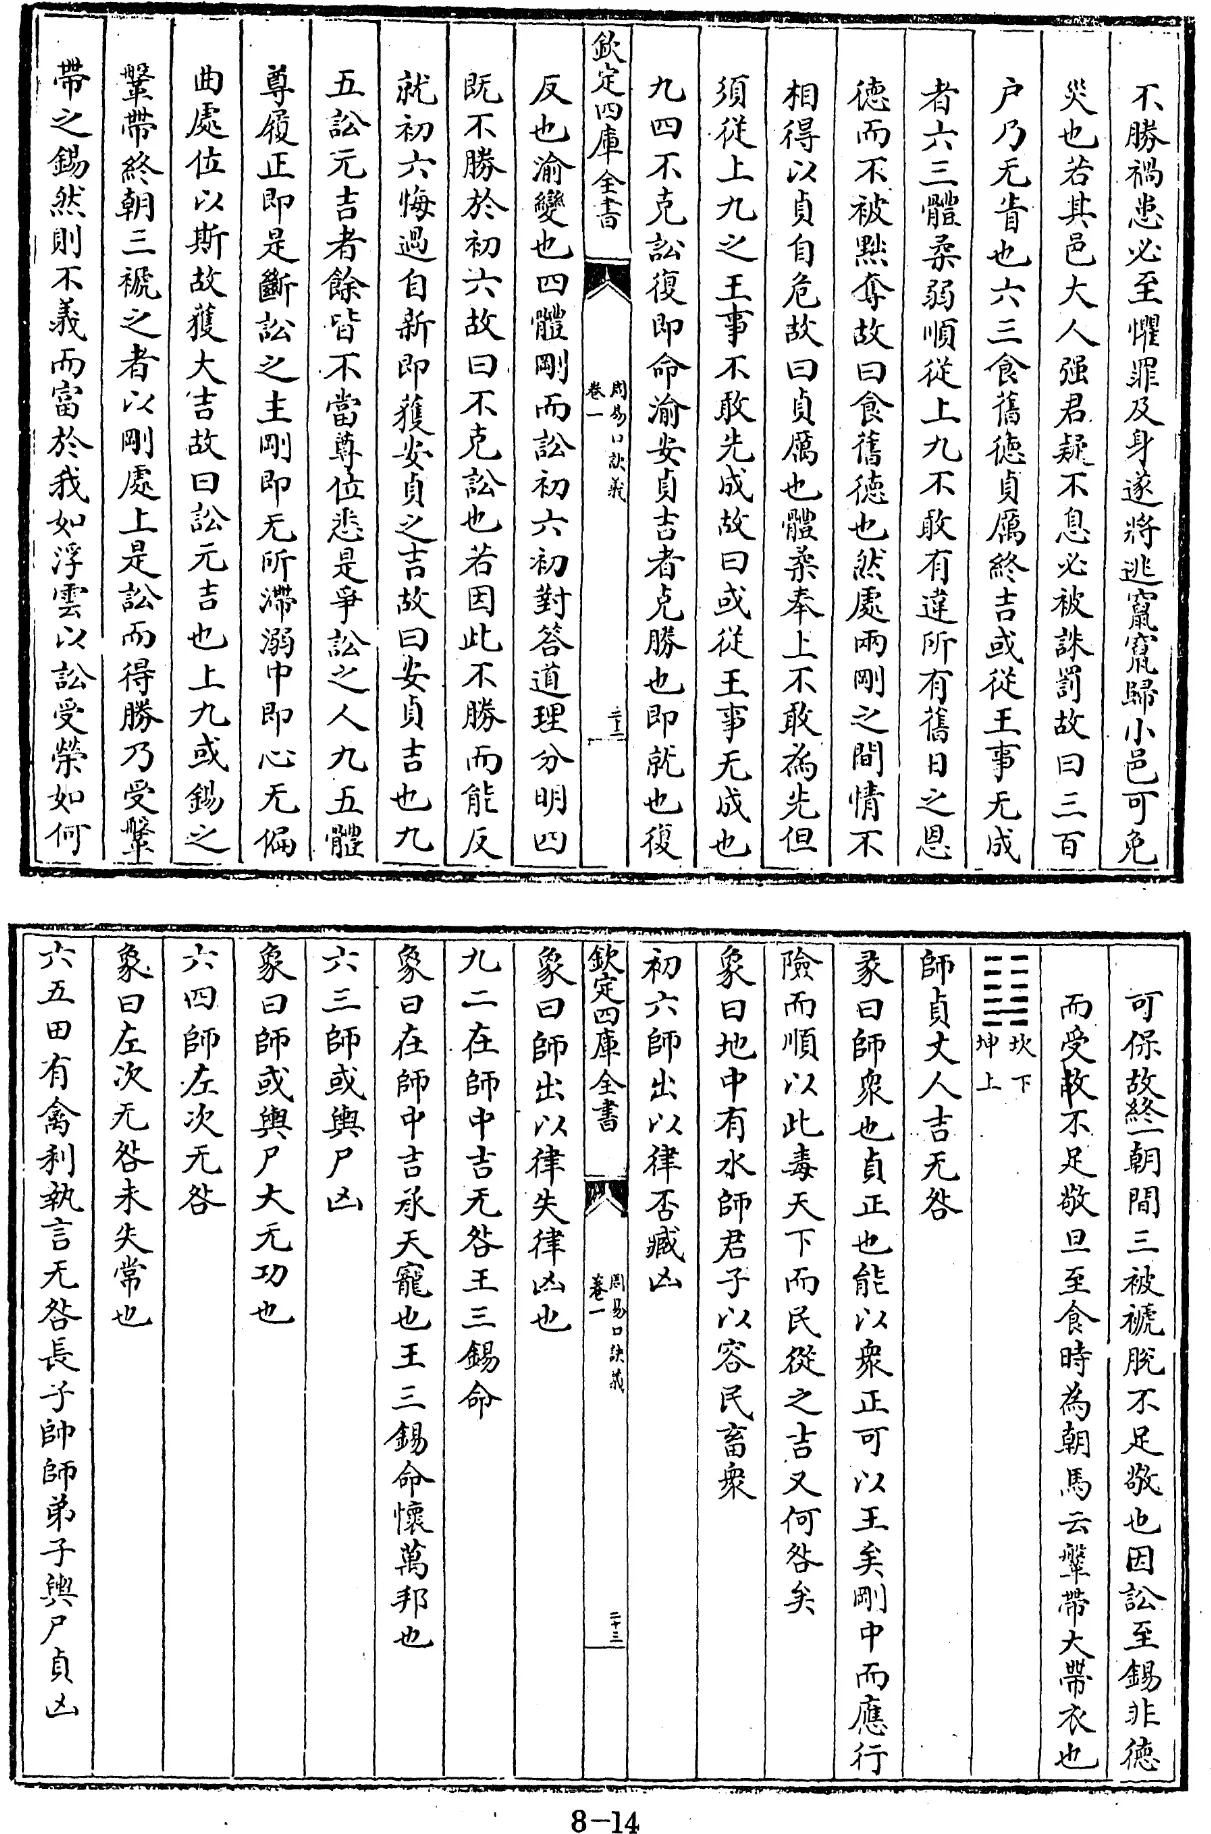 不勝禍患必至懼罪及身遂將逃竄竄歸小邑可免
災也若其邑大人强君疑不息必被誅罰故曰三百
户乃无眚也六三食舊徳貞厲終吉或從王事无成
者六三體柔弱順從上九不敢有違所有舊日之恩
徳而不被㸃奪故曰食舊徳也然處兩剛之間情不
相得以貞自危故曰貞厲也體柔奉上不敢為先但
須從上九之王事不敢先成故曰或從王事无成也
九四不克訟復即命渝安貞吉者克勝也即就也復
欽定四庫全書
周易口訣義
卷一
二十二
反也渝變也四體剛而訟初六初對答道理分明四
既不勝於初六故曰不克訟也若因此不勝而能反
就初六悔過自新即獲安貞之吉故曰安貞吉也九
五訟元吉者餘皆不當尊位悉是爭訟之人九五體
尊履正即是斷訟之主剛即无所滯溺中即心无偏
曲處位以斯故獲大吉故曰訟元吉也上九或錫之
鞶帶終朝三褫之者以剛處上是訟而得勝乃受鞶
帶之錫然則不義而富於我如浮雲以訟受榮如何
可保故終一朝間三被褫脫不足敬也因訟至錫非徳
而受故不足敬旦至食時為朝馬云鞶帶大帶衣也
坎下
坤上
師貞丈人吉无咎
彖曰師衆也貞正也能以衆正可以王矣剛中而應行
險而順以此毒天下而民從之吉又何咎矣
象曰地中有水師君子以容民畜衆
初六師出以律否臧凶
欽定四庫全書
周易口訣義
卷一
二十三
象曰師出以律失律凶也
九二在師中吉无咎王三錫命
象曰在師中吉承天寵也王三錫命懷萬邦也
六三師或輿尸凶
象曰師或輿尸大无功也
六四師左次无咎
象曰左次无咎未失常也
六五田有禽利執言无咎長子帥師弟子輿尸貞凶
8-14